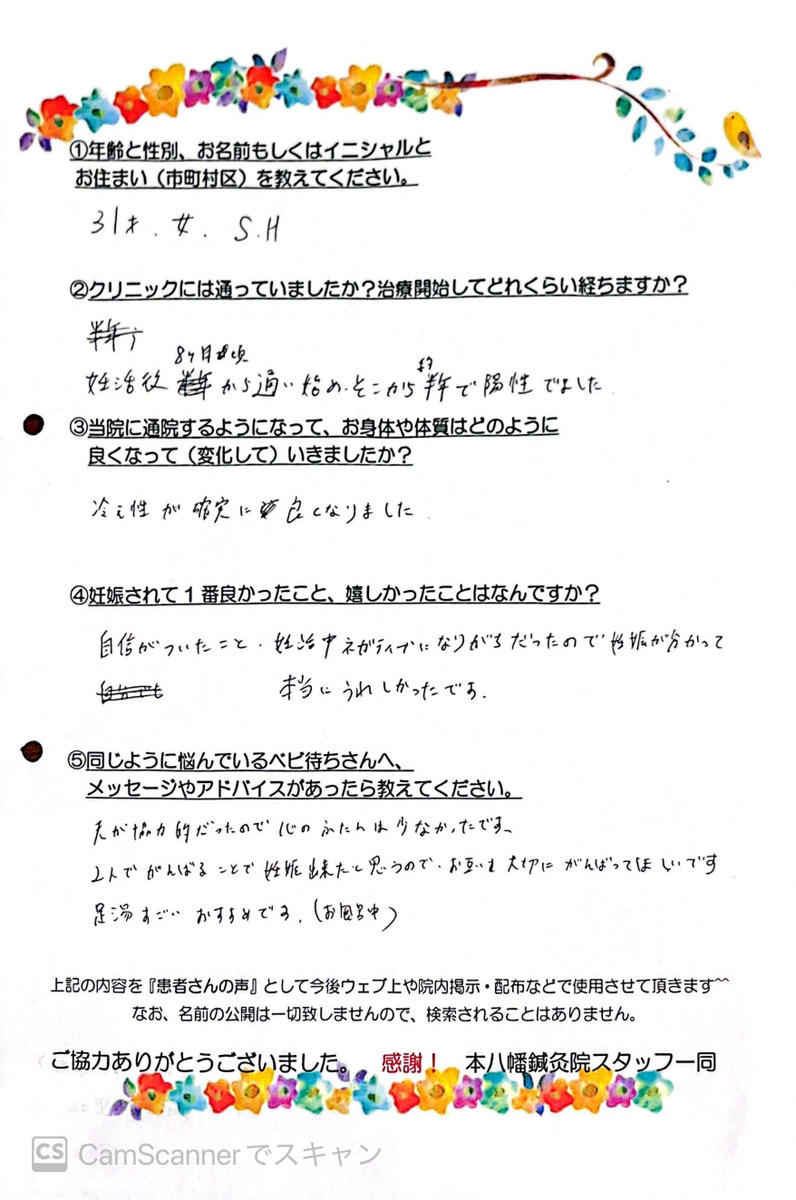 ①年齢と性別、お名前もしくはイニシャルと
お住まい（市町村区）を教えてください。
31才．女．S.H
②クリニックには通っていましたか？治療開始してどれくらい経ちますか？
8ヶ月頃
約
妊活後から通い始め、そこから半年で陽性でました
③当院に通院するようになって、お身体や体質はどのように
良くなって（変化して）いきましたか？
冷え性が確実に良くなりました
④妊娠されて１番良かったこと、嬉しかったことはなんですか？
自信がついたこと．妊活中ネガティブになりがちだったので妊娠が分かって
本当にうれしかったです．
⑤同じように悩んでいるベビ待ちさんへ、
メッセージやアドバイスがあったら教えてください。
夫が協力的だったので心のふたんは少なかったです、
2人でがんばることで妊娠出来たと思うので．お互いを大切にがんばってほしいです
足湯すごいおすすめです．（お風呂中）
上記の内容を『患者さんの声』として今後ウェブ上や院内掲示・配布などで使用させて頂きます^^
なお、名前の公開は一切致しませんので、検索されることはありません。
ご協力ありがとうございました。 感謝！ 本八幡鍼灸院スタッフ一同
CS CamScannerでスキャン